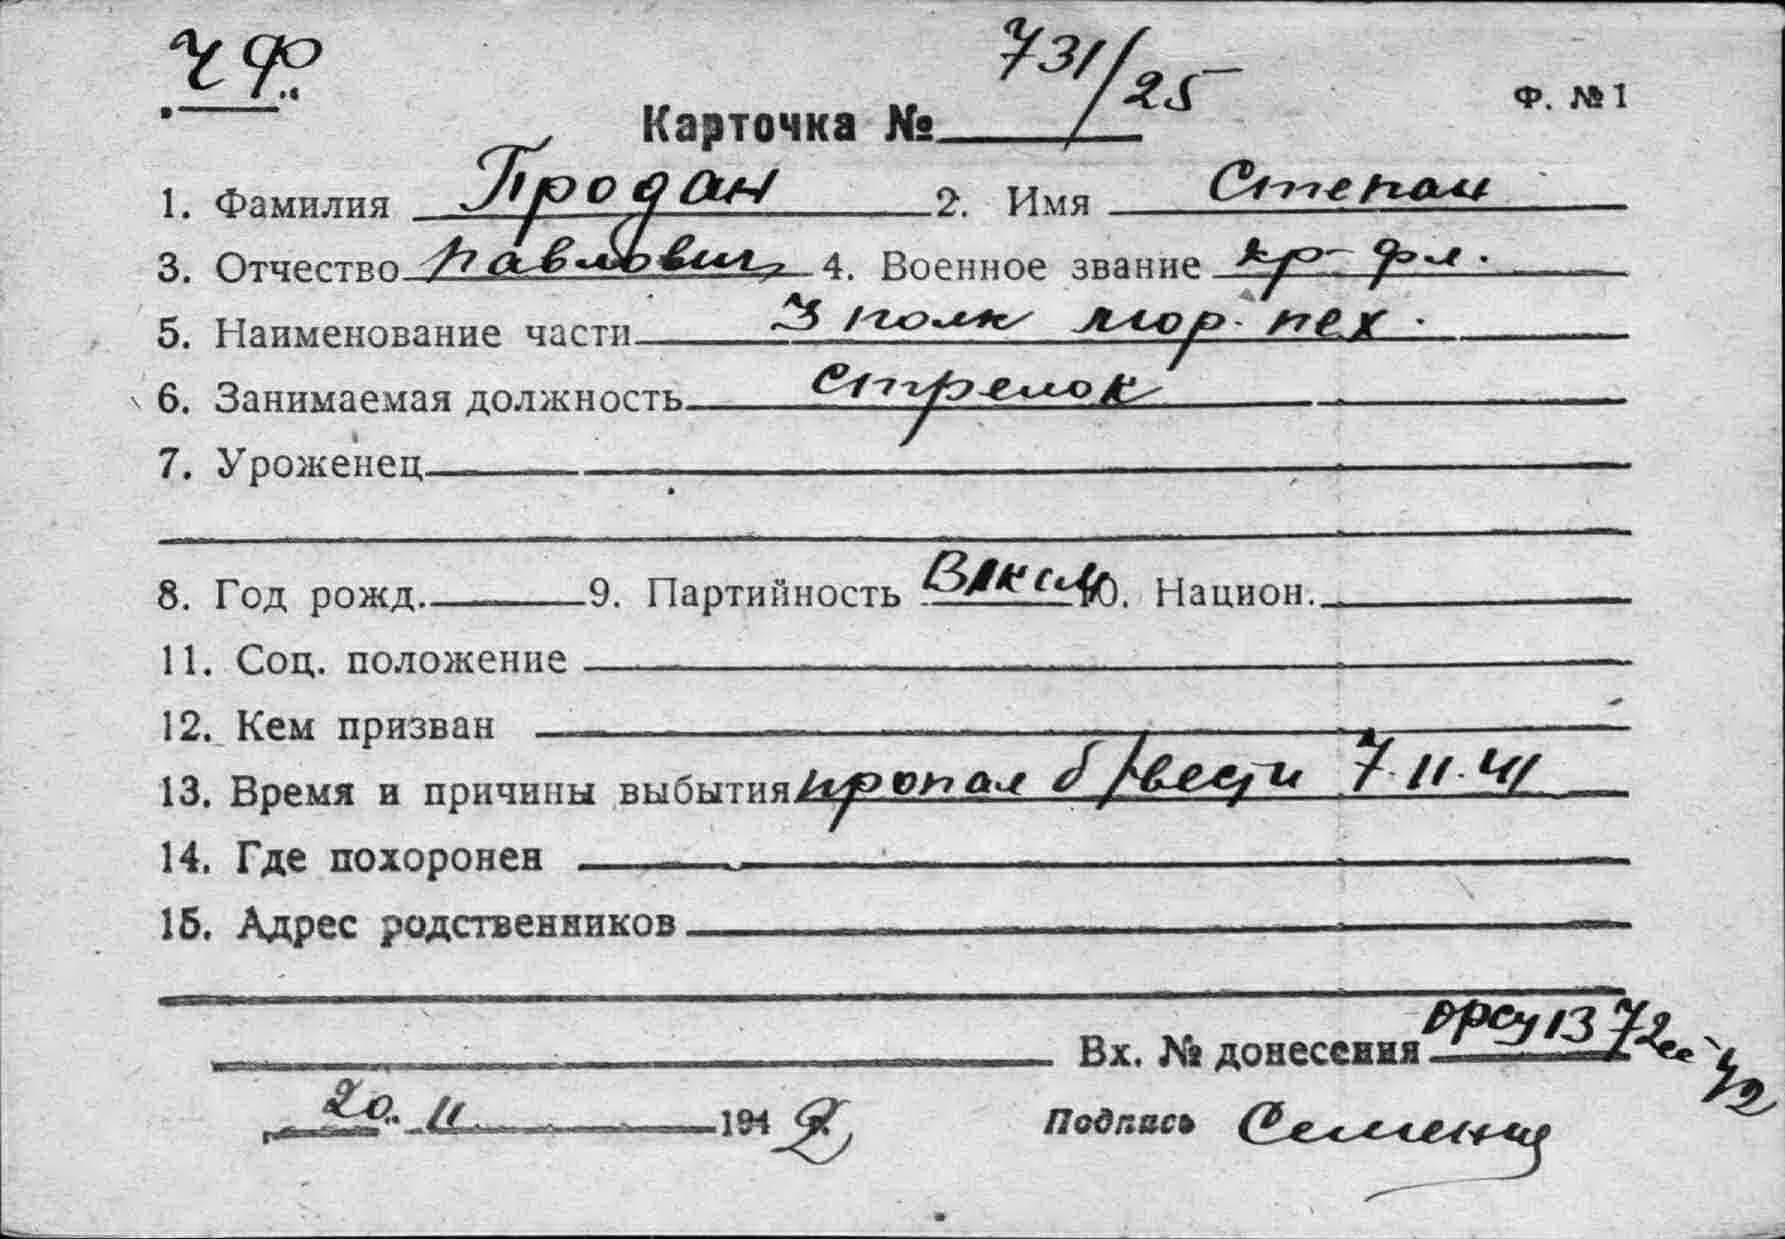 ЧФ
731/25
Ф. №1
Карточка №
1. Фамилия Продан 2. Имя Степан
3. Отчество Павлович 4. Военное звание кр-фл.
5. Наименование части 3 полк мор. пех.
6. Занимаемая должность стрелок
7. Уроженец
8. Год рожд. 9. Партийность ВЛКСМ 10. Национ.
11. Соц. положение
12. Кем призван
13. Время и причины выбытия пропал б/вести 7.11.41
14. Где похоронен
15. Адрес родственников
Вх. № донесения ОРСУ 1372сс-42
20. 11 1942
Подпись